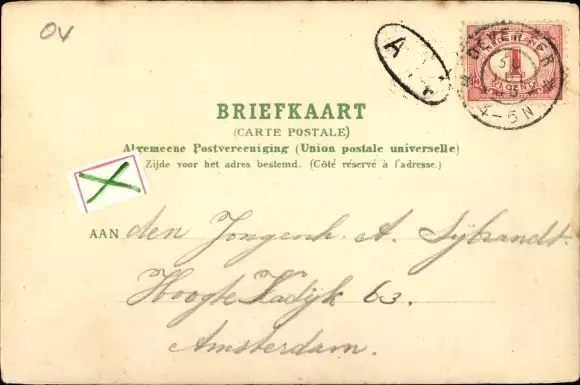 OV
A
DEVENTER
1
4-5 N
BRIEFKAART
(CARTE POSTALE)
Algemeene Postvereeniging (Union postale universelle)
Zijde voor het adres bestemd. (Côté réservé à l'adresse.)
AAN den Jongenh. A. Sijbrandt.
Hoogte Kadijk 63.
Amsterdam.